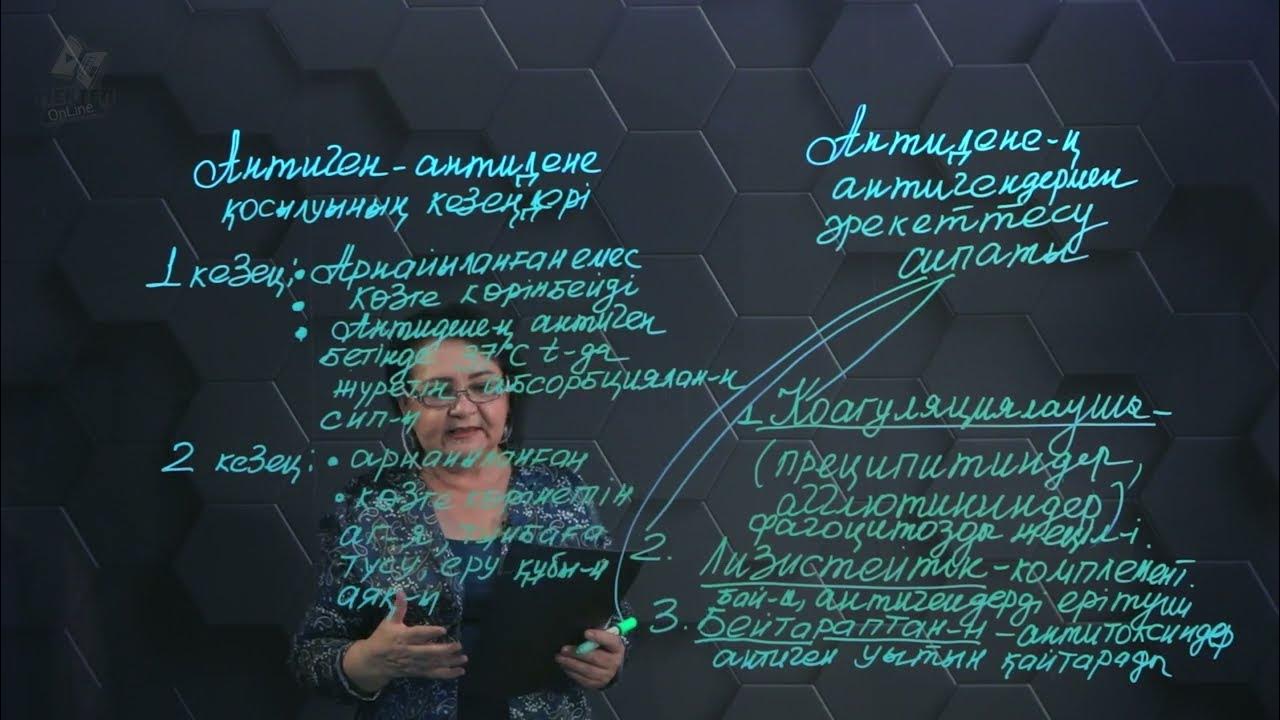 OnLine
Антиген-антидене
қосылуының кезеңдері
1 кезең: • Арнайыланған емес
• көзге көрінбейді
• Антидене-ң антиген
бетінде 37°C t-да
жүретін абсорбциялан-н
сип-ы
2 кезең: • арнайыланған
• көзге көрінетін
аг-я, тұнбаға
түсу, еру құбы-н
аяқ-ы
Антидене-ң
антигендермен
әрекеттесу
сипаты
1. Коагуляциялаушы-
(преципитиндер,
агглютининдер)
фагоцитозды жеңіл-і.
2. Лизистейтін-комплемент.
бай-ы, антигендерді ерітуші
3. Бейтараптан-н-антитоксиндер
антиген уытын қайтарады